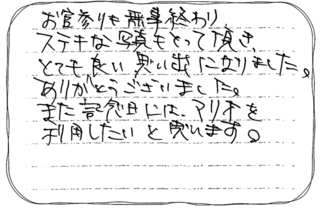 お宮参りも無事終わり、
ステキな写真もとって頂き、
とても良い思い出になりました。
ありがとうございました。
また記念日には、アリオを
利用したいと思います。